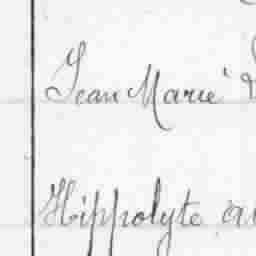 Jean Marie
Hippolyte